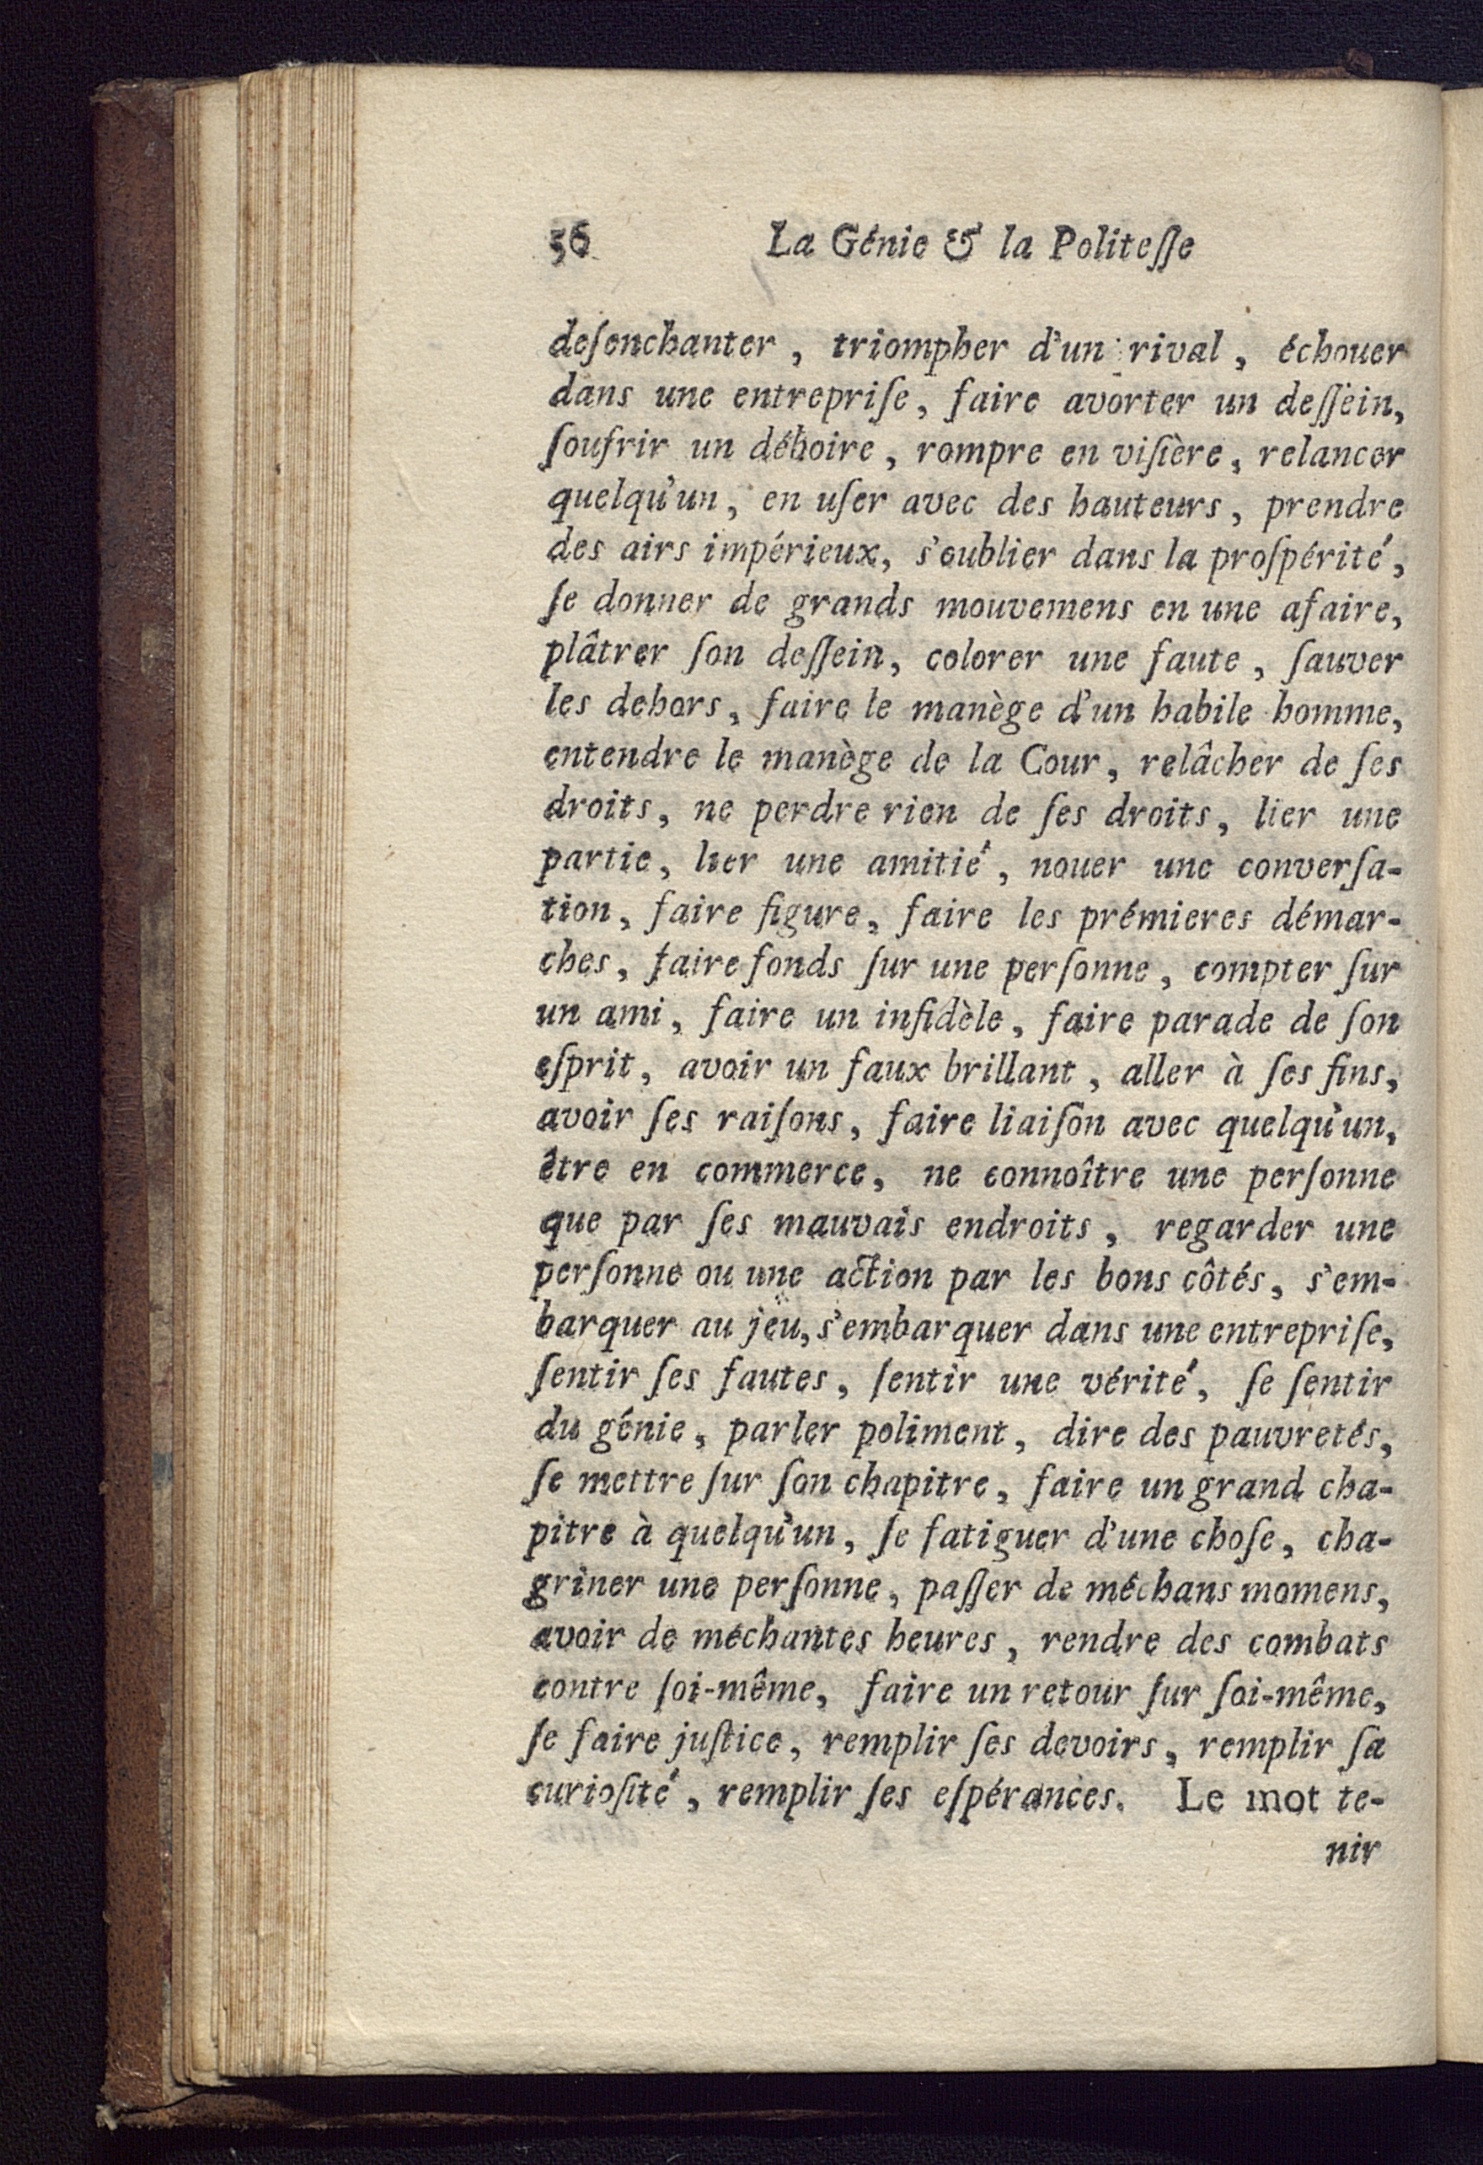 56 La Génie & la Politeſſe
deſenchanter, triompher d'un rival, échouer
dans une entrepriſe, faire avorter un deſſein,
ſoufrir un déboire, rompre en viſière, relancer
quelqu'un, en uſer avec des hauteurs, prendre
des airs impérieux, s'oublier dans la proſpérité,
ſe donner de grands mouvemens en une afaire,
plâtrer ſon deſſein, colorer une faute, ſauver
les dehors, faire le manège d'un habile homme,
entendre le manège de la Cour, relâcher de ſes
droits, ne perdre rien de ſes droits, lier une
partie, lier une amitié, nouer une converſa-
tion, faire figure, faire les prémieres démar-
ches, faire fonds ſur une perſonne, compter ſur
un ami, faire un infidèle, faire parade de ſon
eſprit, avoir un faux brillant, aller à ſes fins,
avoir ſes raiſons, faire liaiſon avec quelqu'un,
être en commerce, ne connoître une perſonne
que par ſes mauvais endroits, regarder une
perſonne ou une action par les bons côtés, s'em-
barquer au jeu, s'embarquer dans une entrepriſe,
ſentir ſes fautes, ſentir une vérité, ſe ſentir
du génie, parler poliment, dire des pauvretés,
ſe mettre ſur ſon chapitre, faire un grand cha-
pitre à quelqu'un, ſe fatiguer d'une choſe, cha-
griner une perſonne, paſſer de méchans momens,
avoir de méchantes heures, rendre des combats
contre ſoi-même, faire un retour ſur ſoi-même,
ſe faire juſtice, remplir ſes devoirs, remplir ſa
curioſité, remplir ſes eſpérances. Le mot te-
nir